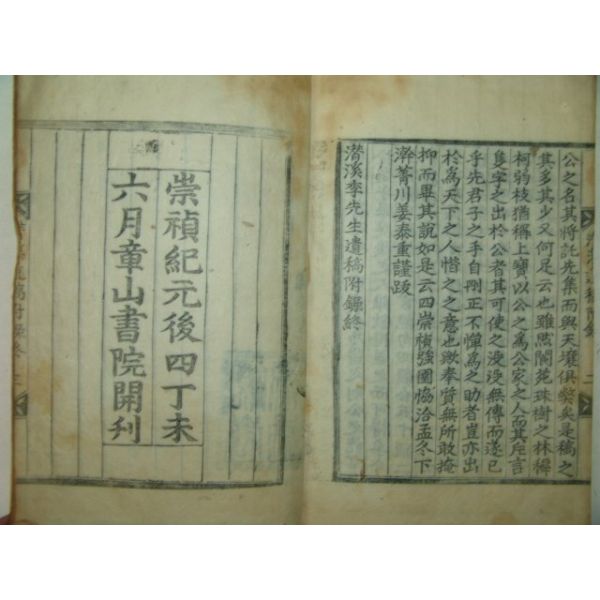 公之名其將託先集而與天壤俱弊矣是稿之
其多其少又何是云也雖然閬苑珠樹之林樨
柯弱枝猶稱上寶以公之爲公家之人而其斥言
隻字之出於公者其可使之湮沒無傳而遂已
乎先君子之手自剛正不憚爲之助者豈亦出
於爲天下之人惜之之意也歟奉賫無所敢掩
抑而畢其說如是云四崇禎強圉協洽孟冬下
澣菁川姜泰重謹跋
潛溪李先生遺稿附錄終
崇禎紀元後四丁未
六月章山書院開刊